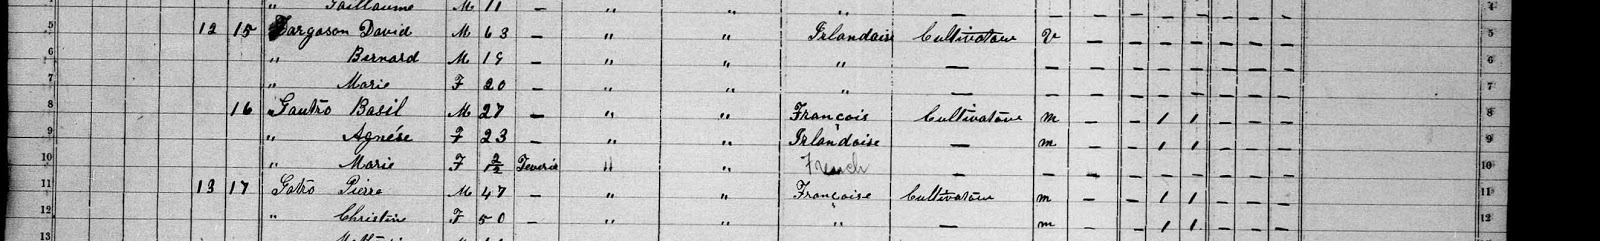 4 " Guillaume M 11 — " " " — 4
5 12 15 Fargason David M 63 — " " Irlandaise Cultivateur V — — — — — — — 5
6 " Bernard M 19 — " " " — — — — — — — 6
7 " Marie F 20 — " " " — — — — — — — 7
8 16 Gautro Basil M 27 — " " François Cultivateur m — — 1 1 — — — 8
9 " Agnése F 23 — " " Irlandaise — m — — 1 1 — — — 9
10 " Marie F Fevrier " " French — — — — — — — 10
11 13 17 Gotro Pierre M 47 — " " Françoise Cultivateur m — — 1 1 — — — 11
12 " Christin F 50 — " " " — m — — 1 1 — — — 12
13